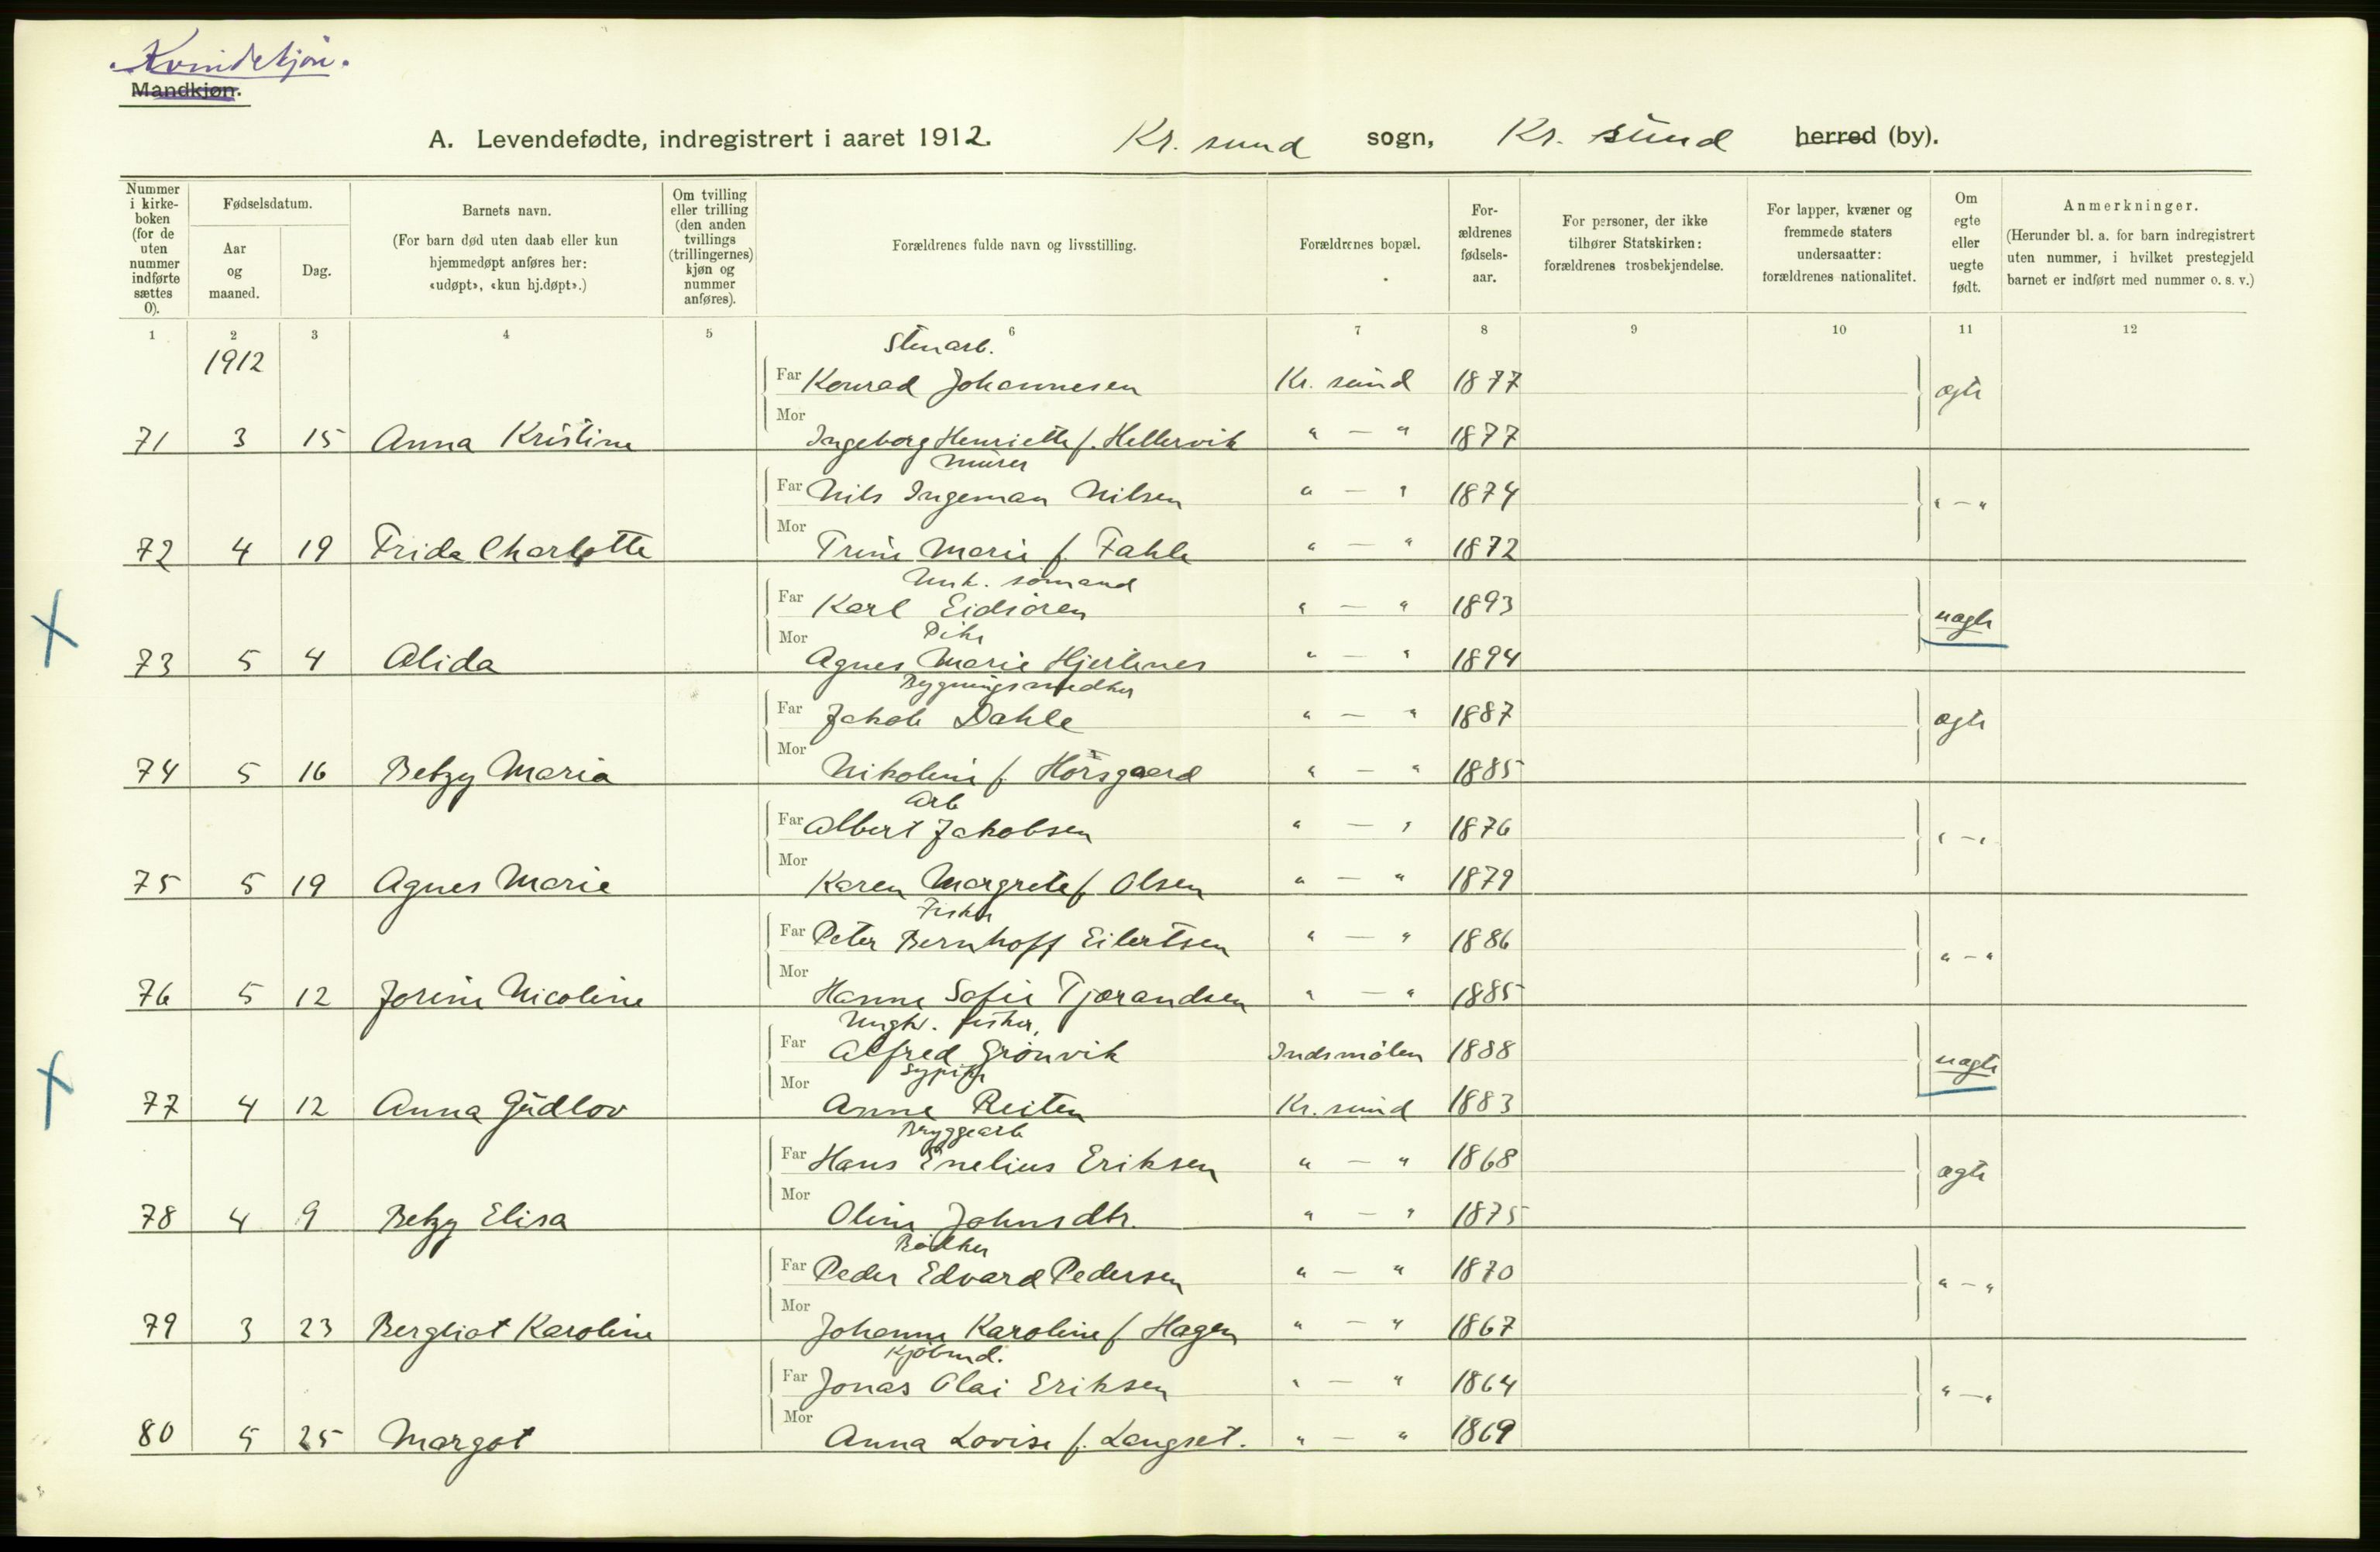 Kvindekjøn.
Mandkjøn.
A. Levendefødte, indregistrert i aaret 1912. Kr. sund sogn, Kr. sund herred (by).
Nummer i kirkeboken (for de uten nummer indførte sættes 0).
Fødselsdatum.
Aar og maaned.
Dag.
Barnets navn.
(For barn død uten daab eller kun hjemmedøpt anføres her: «udøpt», «kun hj.døpt».)
Om tvilling eller trilling (den anden tvillings (trillingernes) kjøn og nummer anføres).
Forældrenes fulde navn og livsstilling.
Forældrenes bopæl.
Forældrenes fødselsaar.
For personer, der ikke tilhører Statskirken: forældrenes trosbekjendelse.
For lapper, kvæner og fremmede staters undersaatter: forældrenes nationalitet.
Om egte eller uegte født.
Anmerkninger.
(Herunder bl. a. for barn indregistrert uten nummer, i hvilket prestegjeld barnet er indført med nummer o. s. v.)
1 2 3 4 5 6 7 8 9 10 11 12
1912
Stenarb.
Far Konrad Johannesen Kr. sund 1877 ægte
Mor
71 3 15 Anna Kristine Ingeborg Henriette f. Hellervik " — " 1877
Murer
Far Nils Ingeman Nilsen " — " 1874 " — "
Mor
72 4 19 Frida Charlotte Trine Marie f. Fahle " — " 1872
Unk. sømand
Far Karl Eidsøren " — " 1893 uægte
Pike
Mor
73 5 4 Alida Agnes Marie Hjertenes " — " 1894
Bygningssnedker
Far Jakob Dahle " — " 1887 ægte
Mor
74 5 16 Betzy Maria Nikoline f. Horsgaard " — " 1885
Arb
Far Albert Jakobsen " — " 1876 " — "
Mor
75 5 19 Agnes Marie Karen Margrete f. Olsen " — " 1879
Fisker
Far Peter Bernhoff Eilertsen " — " 1886 " — "
Mor
76 5 12 Jorine Nicoline Hanna Sofie Tjærandsen " — " 1885
Ungk. fisker,
Far Alfred Grönvik Indsmølen 1888 uægte
Sypike
Mor
77 4 12 Anna Gudlov Anne Reiten Kr. sund 1883
Bryggearb
Far Hans Enelius Eriksen " — " 1868 ægte
Mor
78 4 9 Betzy Elisa Oline Johnsdtr. " — " 1875
Bødker
Far Peder Edvard Pedersen " — " 1870 " — "
Mor
79 3 23 Bergliot Karoline Johanne Karoline f. Hagen " — " 1867
Kjøbmd.
Far Jonas Olai Eriksen " — " 1864 " — "
Mor
80 5 25 Margot Anna Lovise f. Langset. " — " 1869